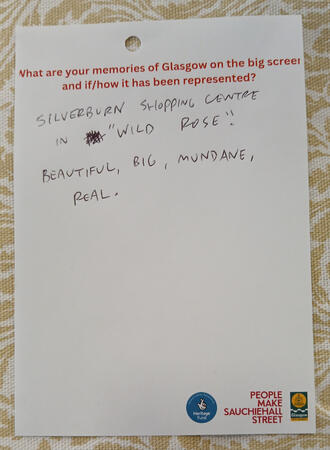 What are your memories of Glasgow on the big screen
and if/how it has been represented?
SILVERBURN SHOPPING CENTRE
IN "WILD ROSE"!
BEAUTIFUL, BIG, MUNDANE,
REAL.
Heritage
Fund
PEOPLE
MAKE
SAUCHIEHALL
STREET
Glasgow